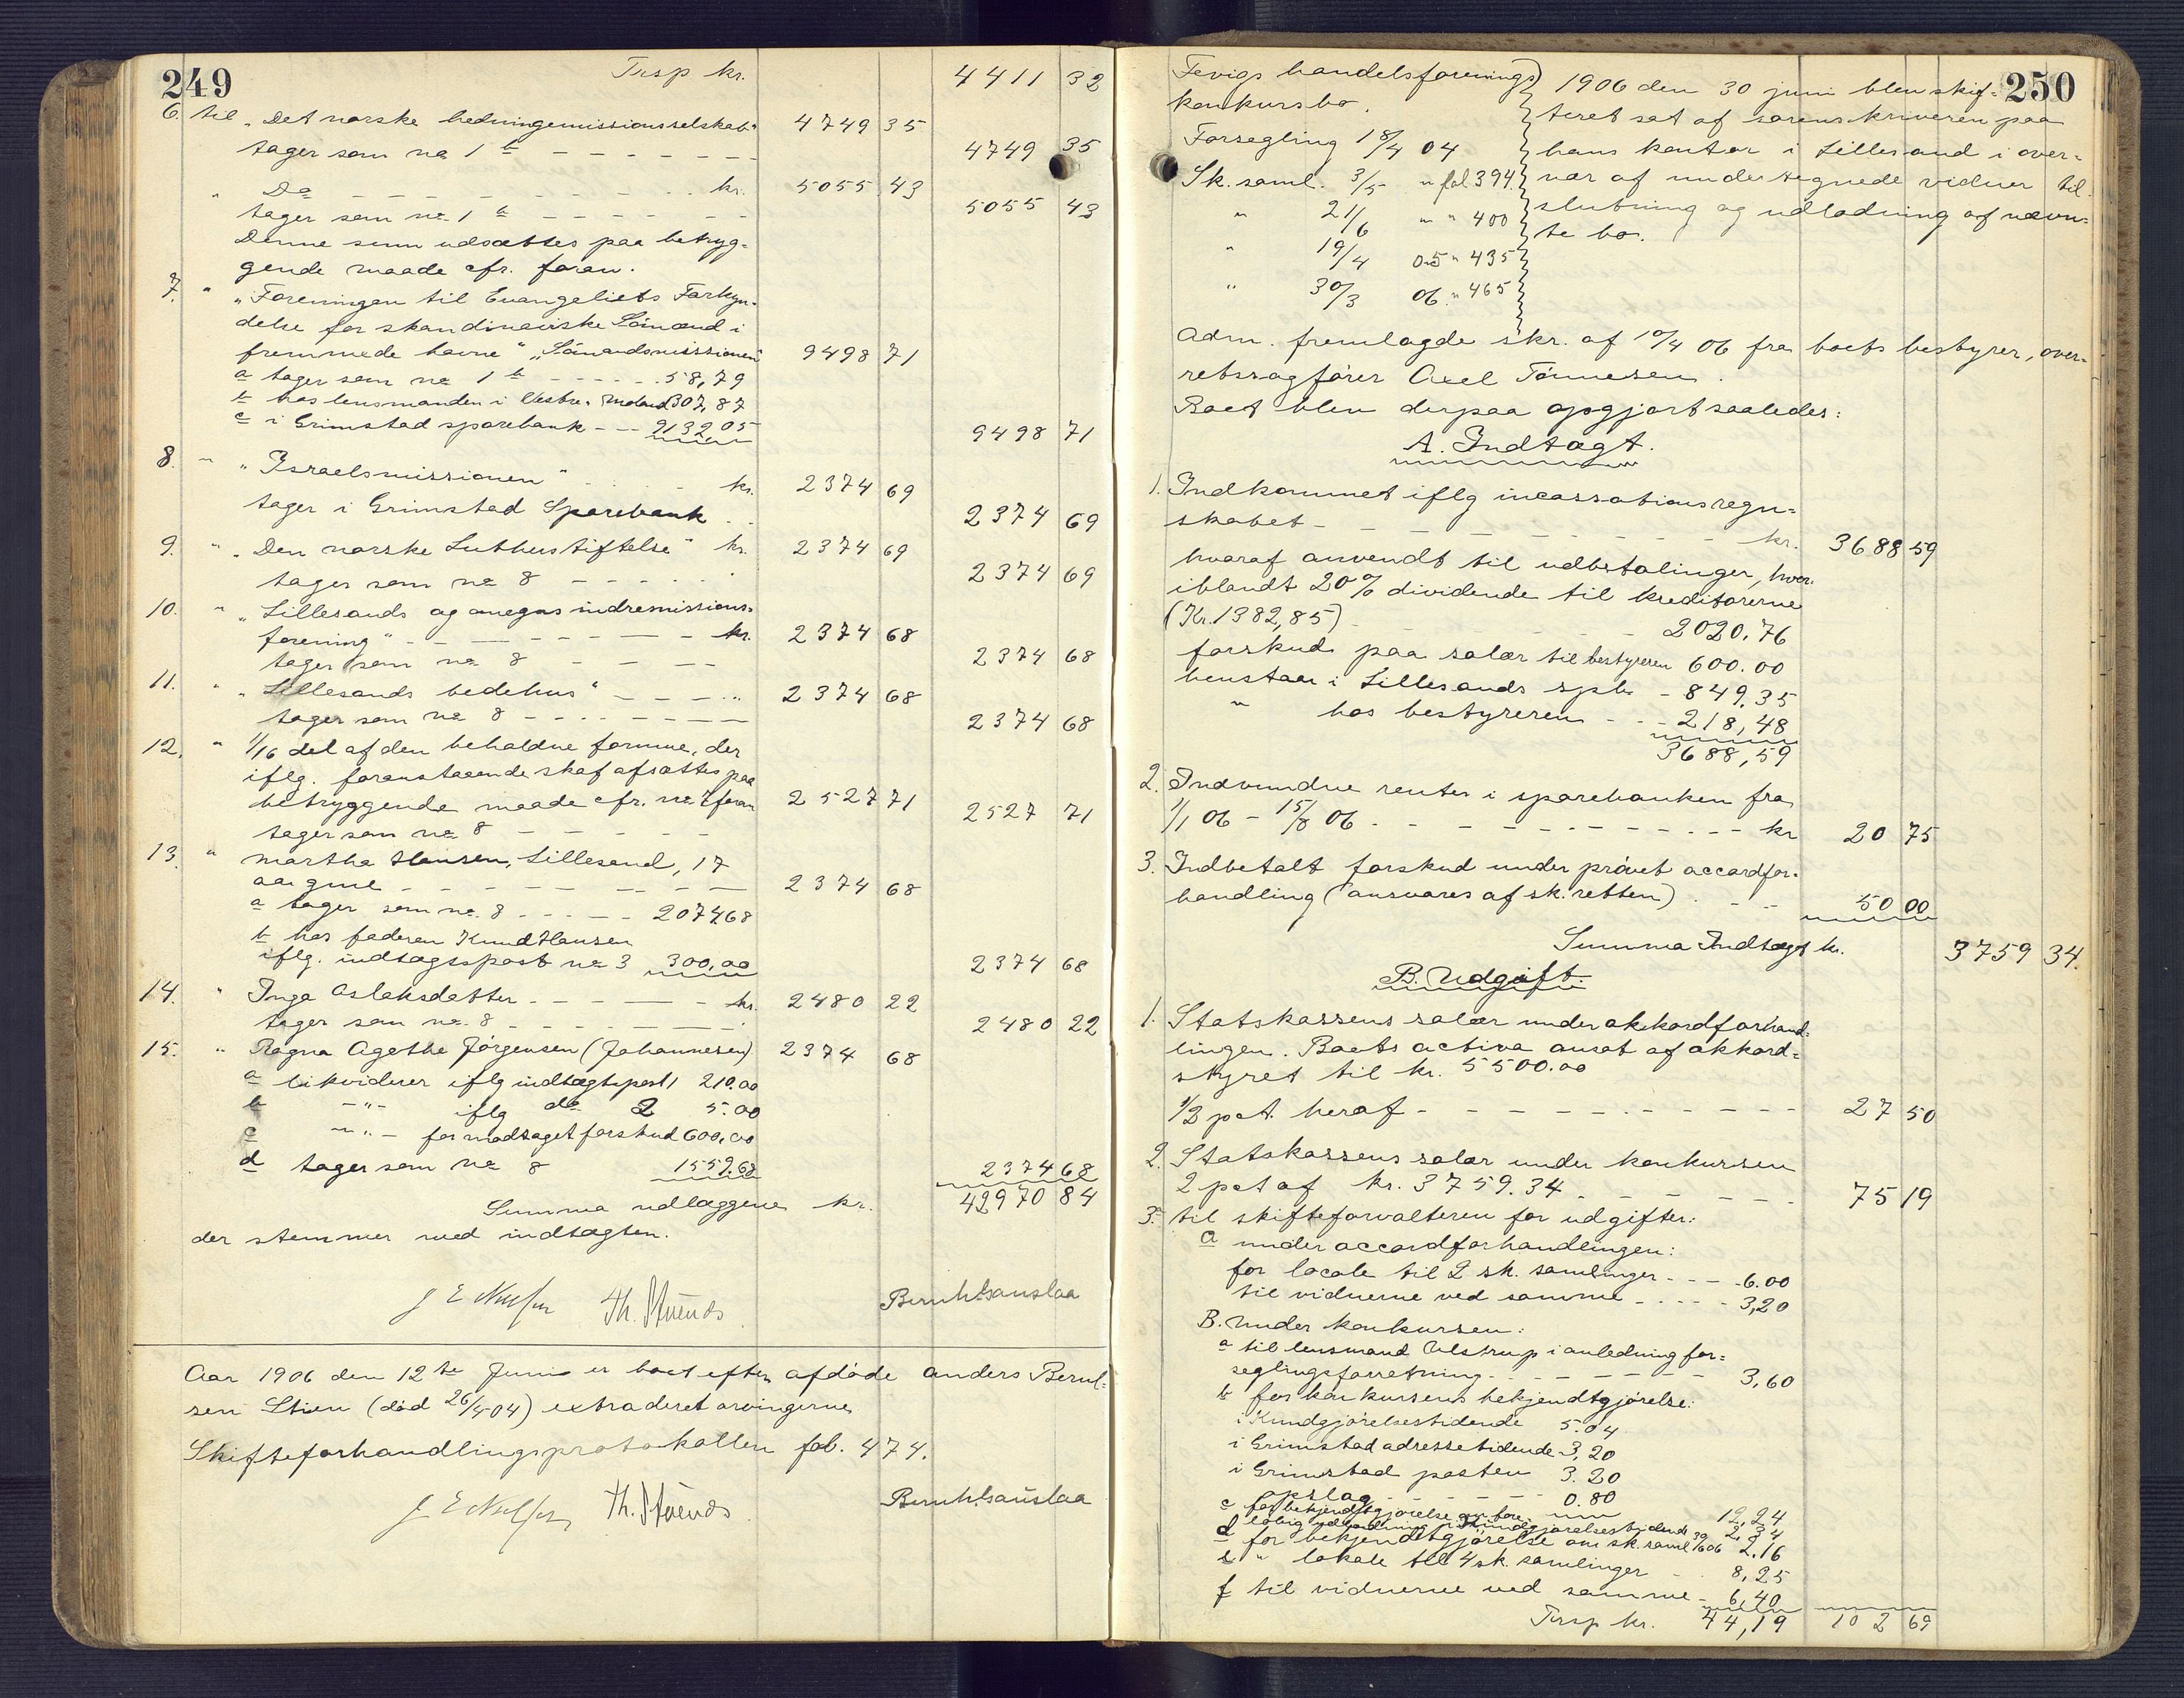 249
Trsp kr. 4411 32
6. til "Det norske hedningemissionsselskab" 4749 35
tager som no 1 b - - - - - - - 4749 35
" Do - - - - - - kr. 5055 43
tager som no 1 b - - - - - 5055 43
Denne sum udsættes paa betryg-
gende maade cfr. foran.
7. " "Foreningen til Evangeliets Forkyn-
delse for skandinaviske Sömænd i
fremmede havne" "Sömandsmissionen" 9498 71
a tager som no 1 b - - - - - 58,79
b hos lensmanden i Vestre Moland 307,87
c i Grimstad sparebank - - - 9132 05 9498 71
8. " "Israelsmissionen" - - - kr. 2374 69
tager i Grimstad Sparebank - - 2374 69
9. " "Den norske Lutherstiftelse" kr. 2374 69
tager som no 8 - - - - - 2374 69
10. " "Lillesands og omegns indremissions-
forening" - - - - - kr. 2374 68
tager som no 8 - - - - 2374 68
11. " "Lillesands bedehus" - - - " 2374 68
tager som no 8 - - - - - - 2374 68
12. " 1/16 del af den beholdne formue, der
iflg. foranstaaende skal afsættes paa
betryggende maade cfr. no 2 foran 2527 71
tager som no 8 - - - - 2527 71
13 " Martha Hansen, Lillesand, 17
aar gml - - - - - - 2374 68
a tager som no. 8 - - - - - 2074 68
b hos faderen Knud Hansen
iflg. indtægtspost no 3 300,00 2374 68
14. " Inga Aslaksdatter - - - - - kr. 2480 22
tager som no. 8 - - - - - 2480 22
15. " Ragna Agethe Jörgensen (Johannesen) 2374 68
a likviderer iflg indtægtspost 1 210.00
b -"- iflg do 2 5.00
c -"- for modtaget forskud 600,00
d tager som no 8 1559.68 2374 68
Summa udlæggene kr. 42970 84
der stemmer med indtægten.
Th. Stuends
Aar 1906 den 12te Juni er boet efter afdöde Anders Berul-
sen Stien (död 26/4-04) extraderet arvingerne
Skifteforhandlingsprotokollen fol. 474.
Th. Stuends
250
Fevigs handelsforenings
konkursbo.
Forsegling 18/4 04
Sk. saml. 3/5 " fol 394.
" 21/6 " " 400
" 19/4 05 " 435
" 30/3 06 " 465
1906 den 30 juni blev skif-
teret sat af sorenskriveren paa
hans kontor i Lillesand i over-
vær af undertegnede vidner til
slutning og udlodning af nævn-
te bo.
Adm. fremlagde skr. af 10/4 06 fra boets bestyrer, over-
retssagförer Axel Tönnesen.
Boet blev derpaa opgjort saaledes:
A. Indtægt.
1. Indkommet iflg incassationsregn-
skabet - - - - - - - - kr. 3688 59
hvoraf anvendt til udbetalinger, hver-
iblandt 20% dividende til kreditorerne
(Kr. 1382,85) - - - - - 2020,76
forskud paa salær til bestyreren 600.00
henstaar i Lillesands spb. - 849,35
" hos bestyreren - - - 218,48
3688,59
2. Indvundne renter i sparebanken fra
1/1 06 - 15/8 06 - - - - - - - - kr 20 75
3. Indbetalt forskud under prövet accordfor-
handling (ansvares af sk. retten) - - - 50 00
Summa Indtægt kr. 3759 34.
B. Udgift.
1. Statskassens salær under akkordforhand-
lingen. Boets activa ansat af akkord-
styret til kr. 5500.00
1/2 pct. heraf - - - - - - - - - 27 50
2. Statskassens salær under konkursen
2 pct af kr. 3759.34 - - - - - 75 19
3. til skifteforvalteren for udgifter:
a under accordforhandlingen:
for locale til 2 sk. samlinger - - - 6.00
til vidnerne ved samme - - - - 3,20
B. Under konkursen:
a til lensmand Ulstrup i anledning for-
seglingsforretning - - - - - - 3,60
b for konkursens bekjendtgjörelse:
i Kundgjörelsestidende 5.04
i Grimstad adressetidende 3,20
i Grimstad posten 3.20
opslag - - - - - 0.80
12,24
c for bekjendtgjörelse om fore-
löbig udlodning i Kundgjörelsestidende 2,34
d for bekjendtgjörelse om sk. saml 30/6 06 2,16
e " lokale til 4 sk. samlinger - - 8,25
f til vidnerne ved samme - 6,40
Trsp kr. 44,19 102 69